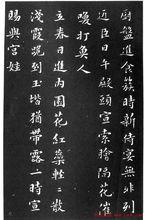 厨盤進食簇時新侍宴無非列
近臣日午殿頭宣索鱠隔花催
喚打魚人
立春日進内園花紅蘂輕輕嫩
淺霞跪到玉堦猶帶露一時宣
賜與宮娃